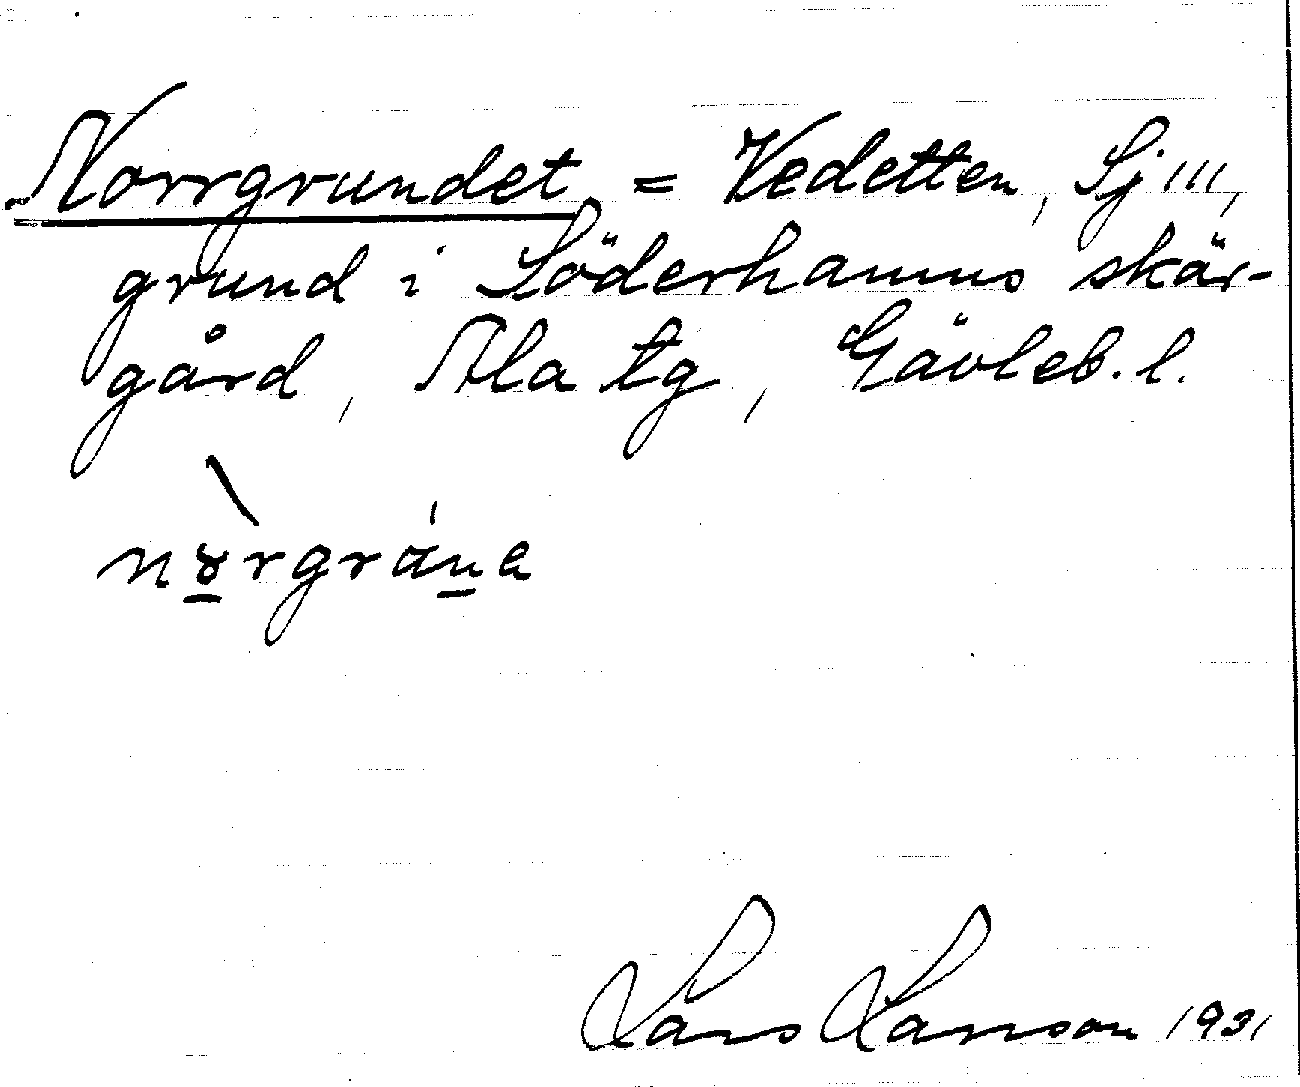 Norrgrundet = Vedetten, Sj 111,
grund i Söderhamns skär-
gård, Ala tg, Gävleb. l.
Lars Larsson 1931